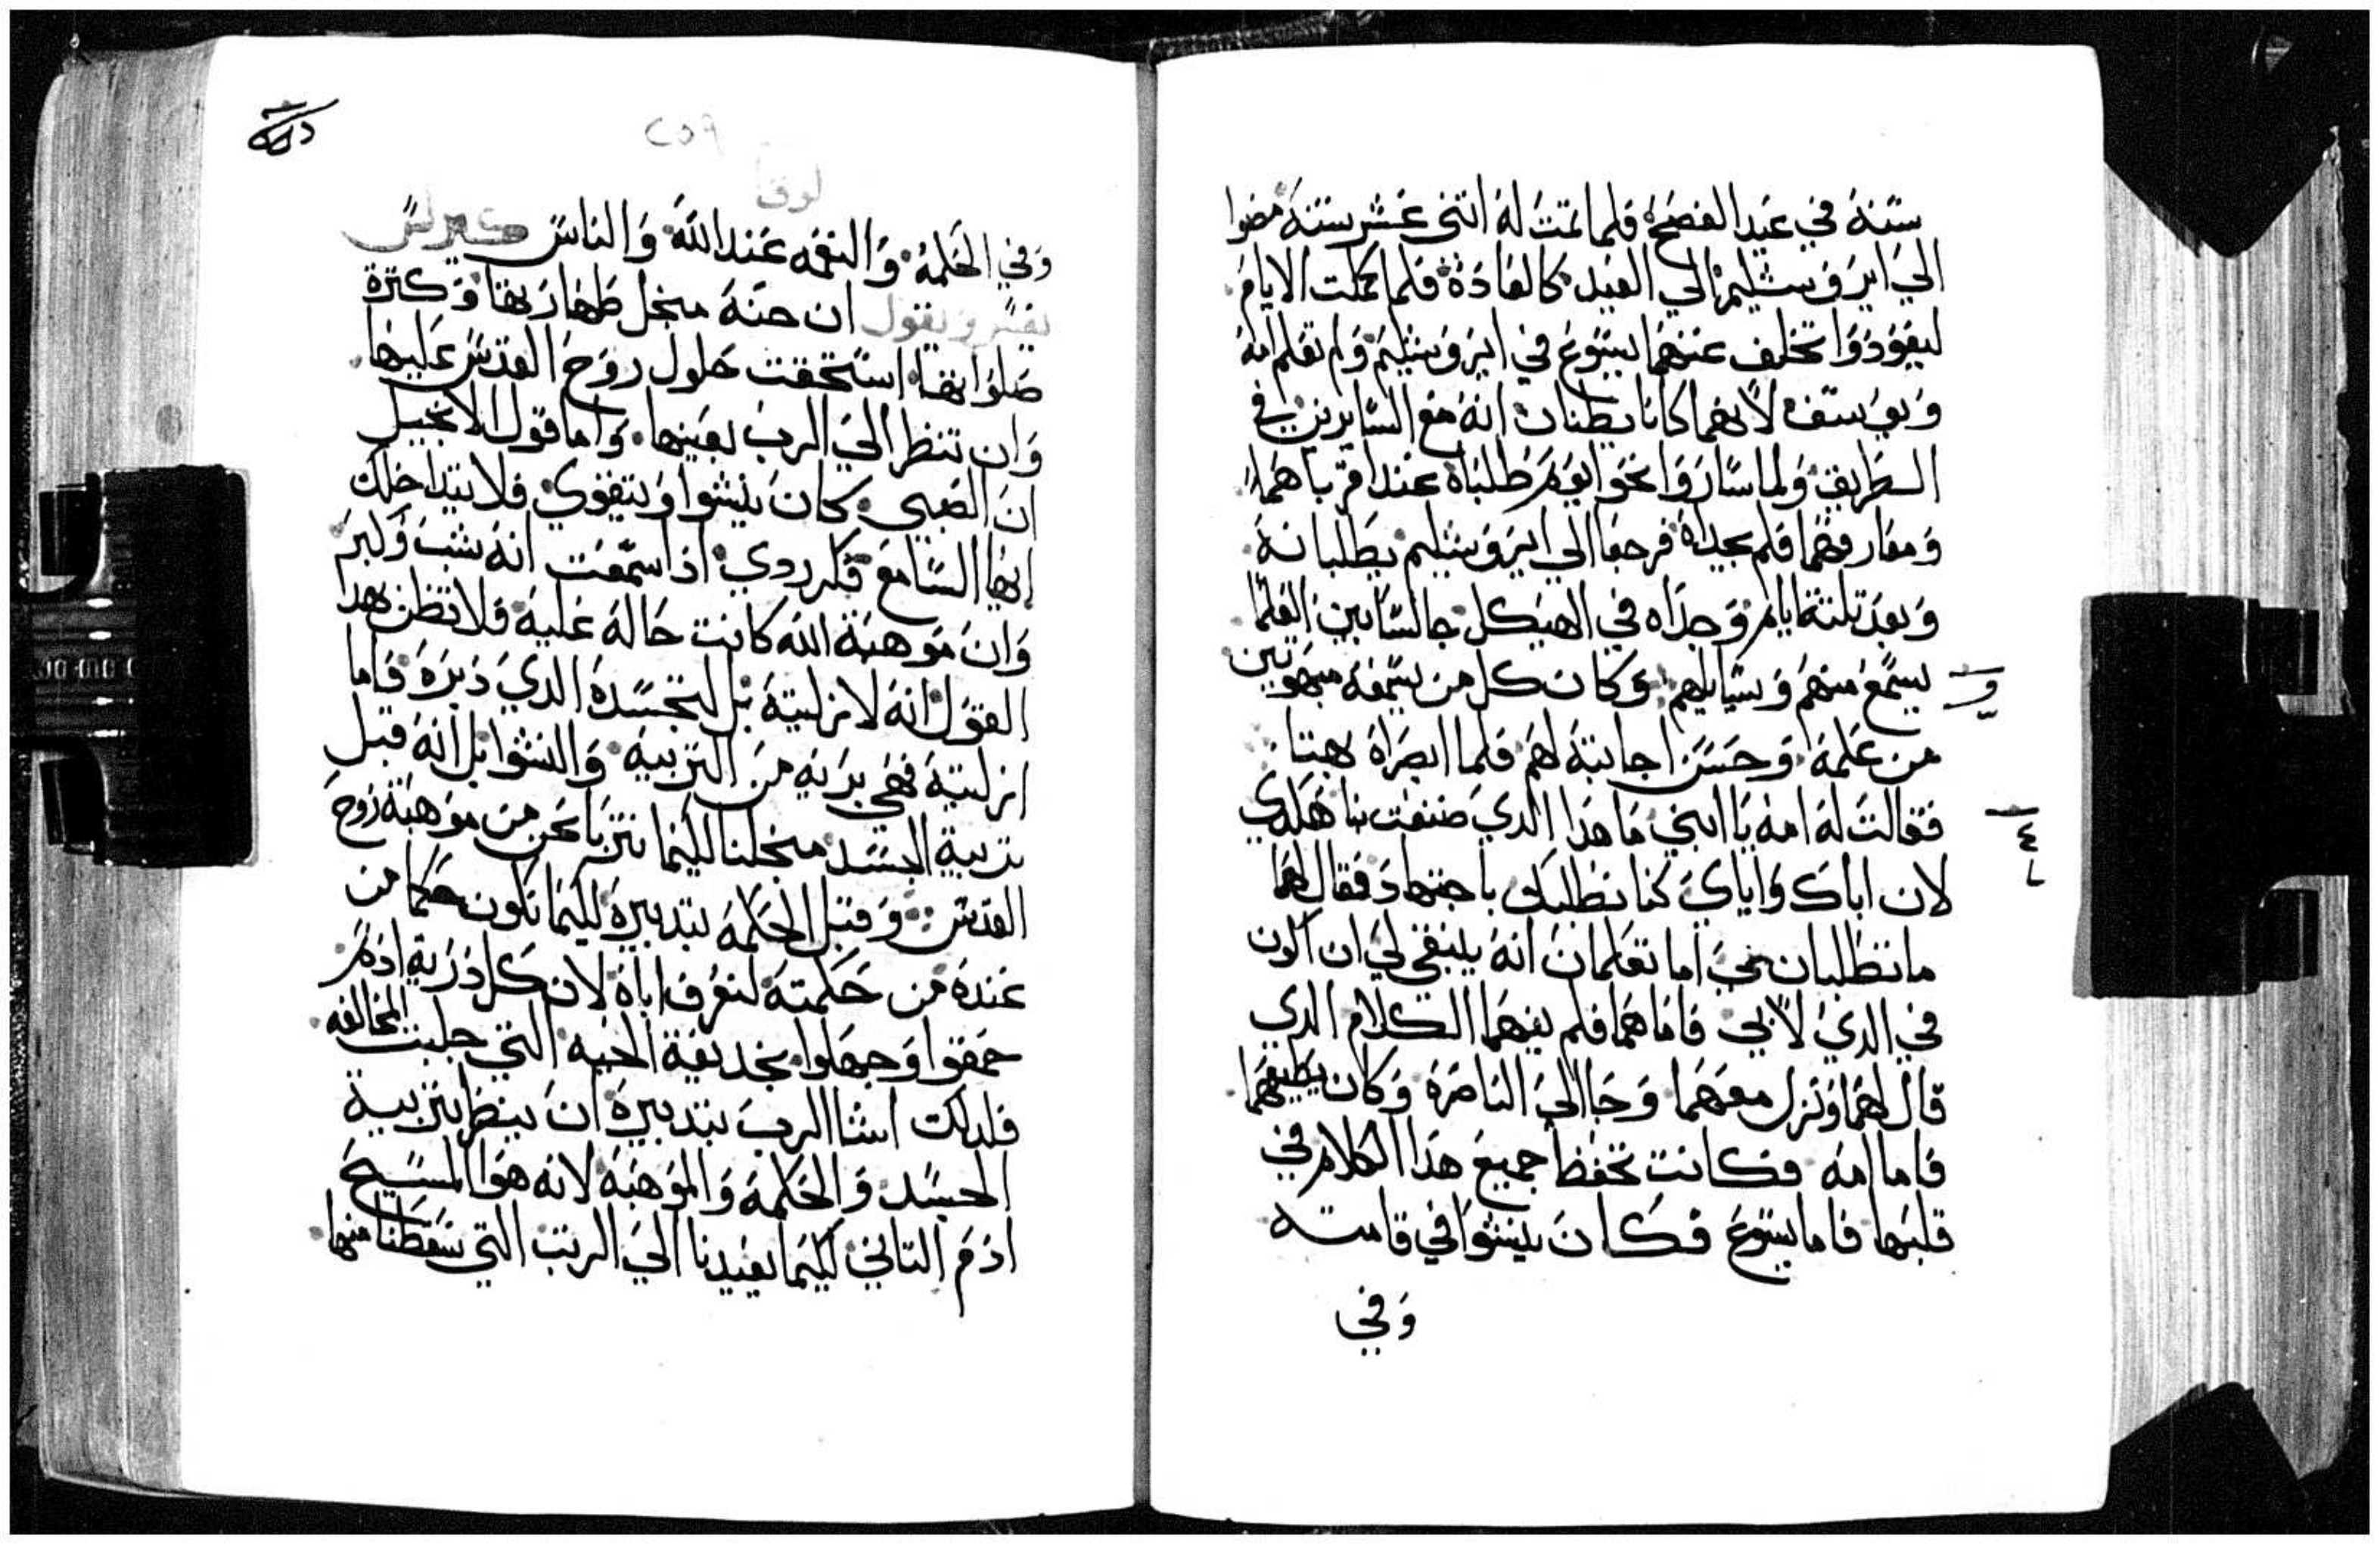 سنة في عيد الفصح فلما تمت له اتنى عشر سنة مضوا
الي ايروشليم الي العيد كالعادة فلما كملت الايام
ليعودوا تخلف عنهما يسوع في ايروشليم ولم تعلم امه
ويوسف لانهما كانا يظنان انه مع السايرين في
الطريق ولما ساروا نحوا يوم طلباه عند اقرباهما
ومعارفهما فلم يجداه فرجعا الي ايروشليم يطلبانه
وبعد تلتة ايام وجداه في الهيكل جالسا بين العلما
يسمع منهم ويسايلهم وكان كل من يسمعه مبهوتين
من علمه وحسن اجابته لهم فلما ابصراه بهتا
فقالت له امه يا ابني ما هذا الدي صنعت بنا هكدي
لان اباك واياي كنا نطلبك باجتهاد فقال لهما
ما تطلبان مني اما تعلمان انه ينبغي لي ان اكون
في الدي لابي فاما هما فلم يفهما الكلام الدي
قال لهما ونزل معهما وجا الي الناصرة وكان يطيعهما
فاما امه فكانت تحفظ جميع هذا الكلام في
قلبها فاما يسوع فكان ينشوا في قامته
وفي
٢٥٩
لوقا
وفي الحكمة والنعمه عند الله والناس كيرلس
يفسر ويقول ان حنة من اجل طهارتها وكترة
صلواتها استحقت حلول روح القدس عليها
وان تنظر الي الرب بعينها واما قول الانجيل
ان الصبي كان ينشوا ويتقوي فلا يتداخلك
ايها السامع فكر ردي اذا سمعت انه شب وكبر
وان موهبة الله كانت حاله عليه فلا تظن بهدا
القول انه لازليتة بل لتجسدة الدي دبره فاما
ازليتة فهي بريه من التربيه والنشوا بل انه قبل
تربية الجسد من اجلنا لكيما نتربا نحن من موهبة روح
القدس وقبل الحكمة بتدبيره لكيما نكون حكما من
عنده من حكمته لنعرف اباه لان كل درية ادم
حمقوا وجهلوا بخديعة الحيه التي جلبت المخالفه
فلدلك اشا الرب بتدبيره ان ينظر بتربية
الجسد والحكمة والموهبة لانه هوا المسيح
ادم التاني لكيما يعيدنا الي الرتب التي سقطنا منها